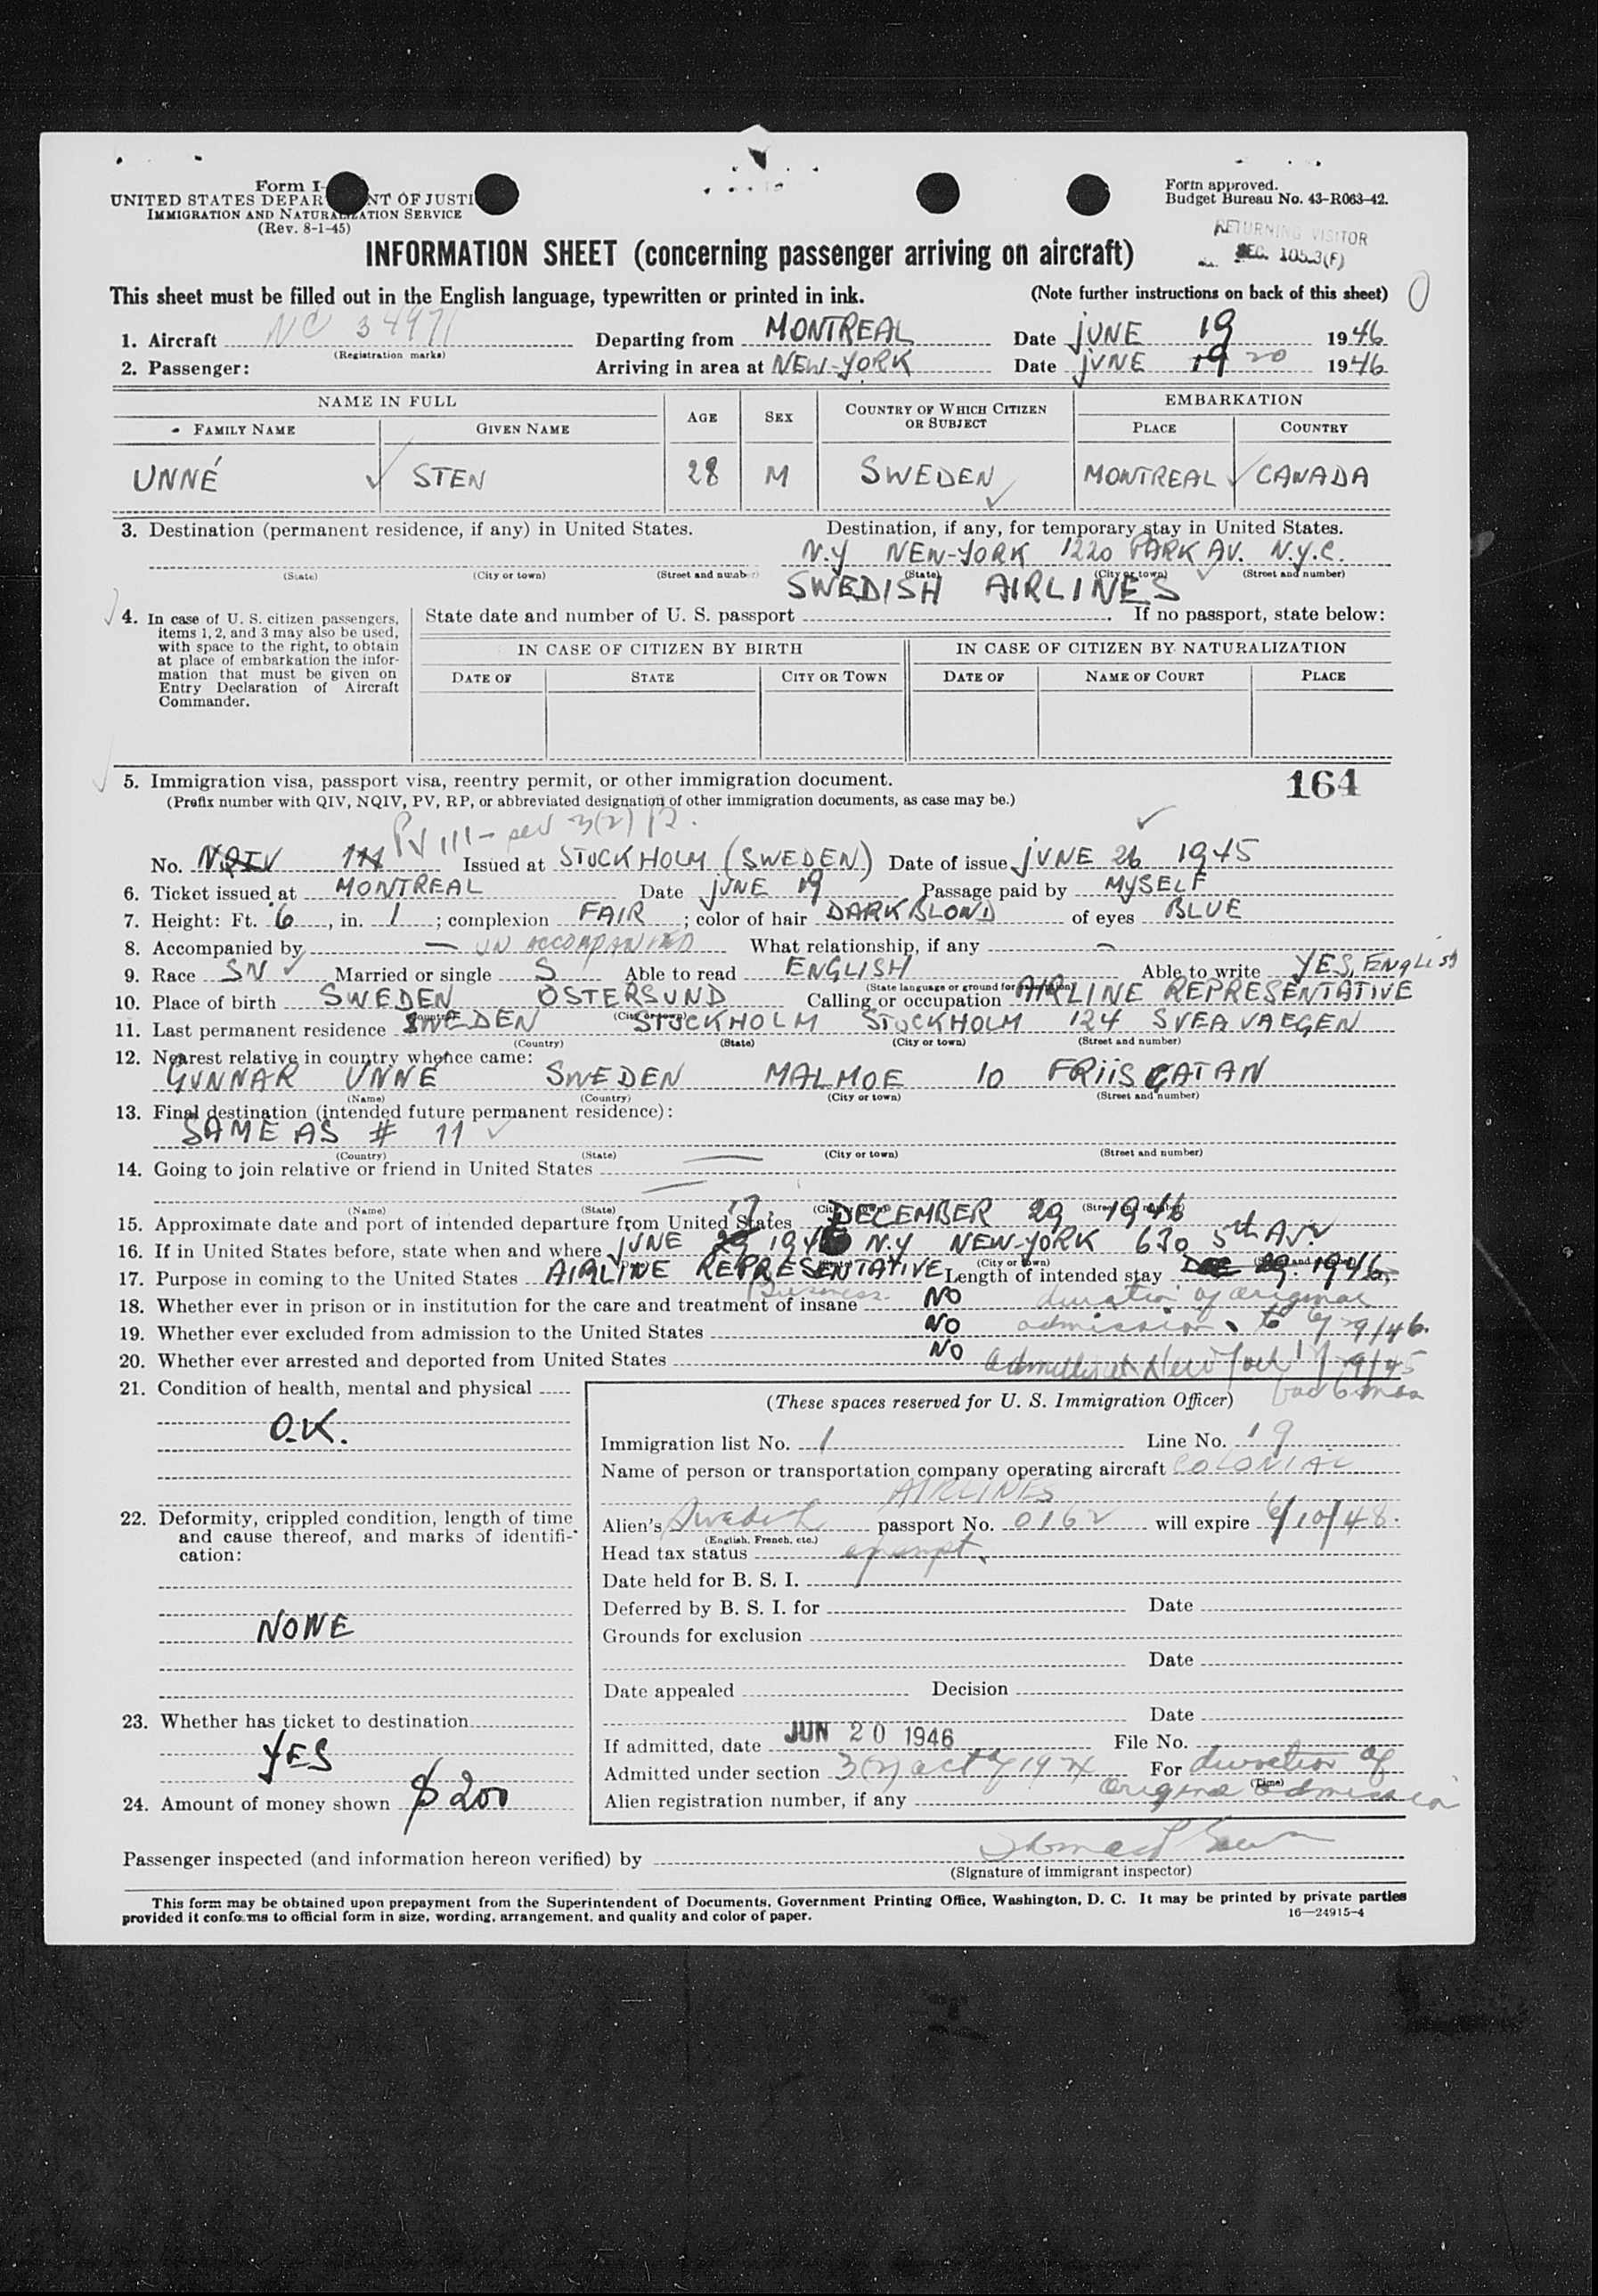 Form I-
UNITED STATES DEPAR NT OF JUSTI
IMMIGRATION AND NATURALIZATION SERVICE
(Rev. 8-1-45)
Form approved.
Budget Bureau No. 43-R063-42.
RETURNING VISITOR
SEC. 105.3(F)
INFORMATION SHEET (concerning passenger arriving on aircraft)
This sheet must be filled out in the English language, typewritten or printed in ink. (Note further instructions on back of this sheet)
1. Aircraft NC 34971 Departing from MONTREAL Date JUNE 19 1946
(Registration marks)
2. Passenger: Arriving in area at NEW-YORK Date JUNE 19 20 1946
NAME IN FULL AGE SEX COUNTRY OF WHICH CITIZEN OR SUBJECT EMBARKATION
FAMILY NAME GIVEN NAME PLACE COUNTRY
UNNÉ STEN 28 M SWEDEN MONTREAL CANADA
3. Destination (permanent residence, if any) in United States. Destination, if any, for temporary stay in United States.
N.Y NEW-YORK 1220 PARK AV. N.Y.C.
(State) (City or town) (Street and number) (State) (City or town) (Street and number)
SWEDISH AIRLINES
4. In case of U. S. citizen passengers, items 1, 2, and 3 may also be used, with space to the right, to obtain at place of embarkation the information that must be given on Entry Declaration of Aircraft Commander.
State date and number of U. S. passport . If no passport, state below:
IN CASE OF CITIZEN BY BIRTH IN CASE OF CITIZEN BY NATURALIZATION
DATE OF STATE CITY OR TOWN DATE OF NAME OF COURT PLACE
5. Immigration visa, passport visa, reentry permit, or other immigration document. 164
(Prefix number with QIV, NQIV, PV, RP, or abbreviated designation of other immigration documents, as case may be.)
PV 111 - 3(2)
No. NQIV 111 Issued at STOCKHOLM (SWEDEN) Date of issue JUNE 26 1945
6. Ticket issued at MONTREAL Date JUNE 19 Passage paid by MYSELF
7. Height: Ft. 6, in. 1; complexion FAIR; color of hair DARKBLOND of eyes BLUE
8. Accompanied by — UN ACCOMPANIED What relationship, if any —
9. Race SN Married or single S Able to read ENGLISH Able to write YES, ENGLISH
(State language or ground for exemption)
10. Place of birth SWEDEN OSTERSUND Calling or occupation AIRLINE REPRESENTATIVE
(Country) (City or town)
11. Last permanent residence SWEDEN STOCKHOLM STOCKHOLM 124 SVEAVAEGEN
(Country) (State) (City or town) (Street and number)
12. Nearest relative in country whence came:
GUNNAR UNNÉ SWEDEN MALMOE 10 FRIISGATAN
(Name) (Country) (City or town) (Street and number)
13. Final destination (intended future permanent residence):
SAME AS # 11
(Country) (State) (City or town) (Street and number)
14. Going to join relative or friend in United States —
—
(Name) (State) (City or town) (Street and number)
15. Approximate date and port of intended departure from United States DECEMBER 29 1946
16. If in United States before, state when and where JUNE 29 194 N.Y NEW-YORK 630 5th Av.
17. Purpose in coming to the United States AIRLINE REPRESENTATIVE Length of intended stay DEC 29. 1946.
Business
18. Whether ever in prison or in institution for the care and treatment of insane NO duration of original
19. Whether ever excluded from admission to the United States NO admission to 6/29/46.
20. Whether ever arrested and deported from United States NO Admitted at New York
21. Condition of health, mental and physical
O.K.
(These spaces reserved for U. S. Immigration Officer) for 6 mos
Immigration list No. 1 Line No. 19
Name of person or transportation company operating aircraft COLONIAL
AIRLINES
22. Deformity, crippled condition, length of time and cause thereof, and marks of identification:
NONE
Alien's Swedish passport No. 0162 will expire 6/10/48.
(English, French, etc.)
Head tax status exempt.
Date held for B. S. I.
Deferred by B. S. I. for Date
Grounds for exclusion
Date
Date appealed Decision
23. Whether has ticket to destination
YES
Date
If admitted, date JUN 20 1946 File No.
Admitted under section 3(2) act of 1924 For duration of
(Time)
24. Amount of money shown $200
Alien registration number, if any original admission
Passenger inspected (and information hereon verified) by
(Signature of immigrant inspector)
This form may be obtained upon prepayment from the Superintendent of Documents, Government Printing Office, Washington, D. C. It may be printed by private parties
provided it conforms to official form in size, wording, arrangement, and quality and color of paper. 16—24915-4